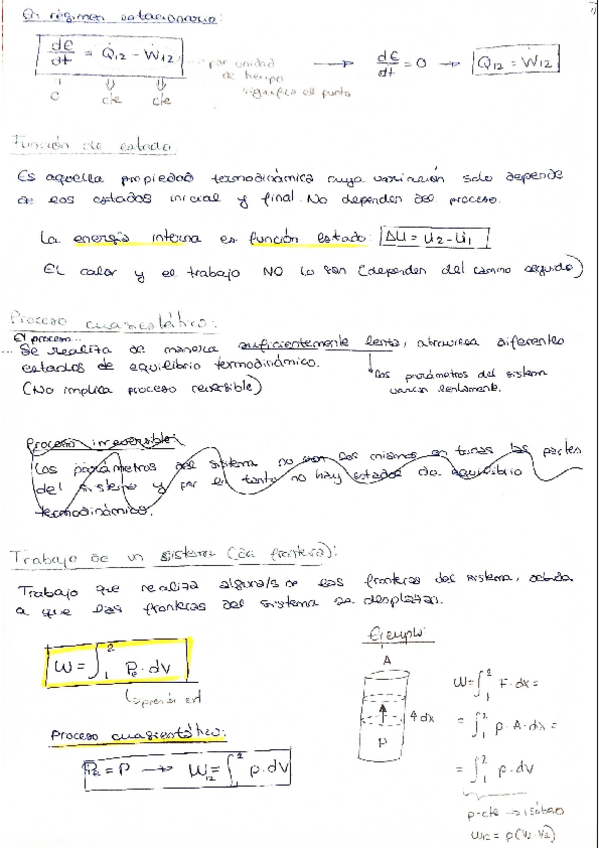 En régimen estacionario:
dE/dt = Q̇12 - Ẇ12 ... por unidad de tiempo significa el punto → dE/dt = 0 → Q̇12 = Ẇ12
0 cte cte
Función de estado:
Es aquella propiedad termodinámica cuya variación solo depende
de los estados inicial y final. No dependen del proceso.
La energía interna es función estado: ΔU = U2 - U1
El calor y el trabajo NO lo son (dependen del camino seguido)
Proceso cuasiestático:
El proceso...
... Se realiza de manera suficientemente lenta, atraviesa diferentes
estados de equilibrio termodinámico.
*los parámetros del sistema
(No implica proceso reversible)
varían lentamente.
Proceso irreversible:
Los parámetros del sistema no son los mismos en todas las partes
del sistema y por el tanto no hay estados de equilibrio
termodinámico.
Trabajo de un sistema (de frontera):
Trabajo que realiza alguna/s de las fronteras del sistema, debido
a que las fronteras del sistema se desplazan.
Ejemplo:
W = ∫₁² Pe · dV
presión ext
A
dx
P
W = ∫₁² F · dx =
= ∫₁² p · A · dx =
= ∫₁² p · dV
Proceso cuasiestático:
Pe = P → W12 = ∫₁² p · dV
p = cte → isóbaro
W12 = p(V2 - V1)